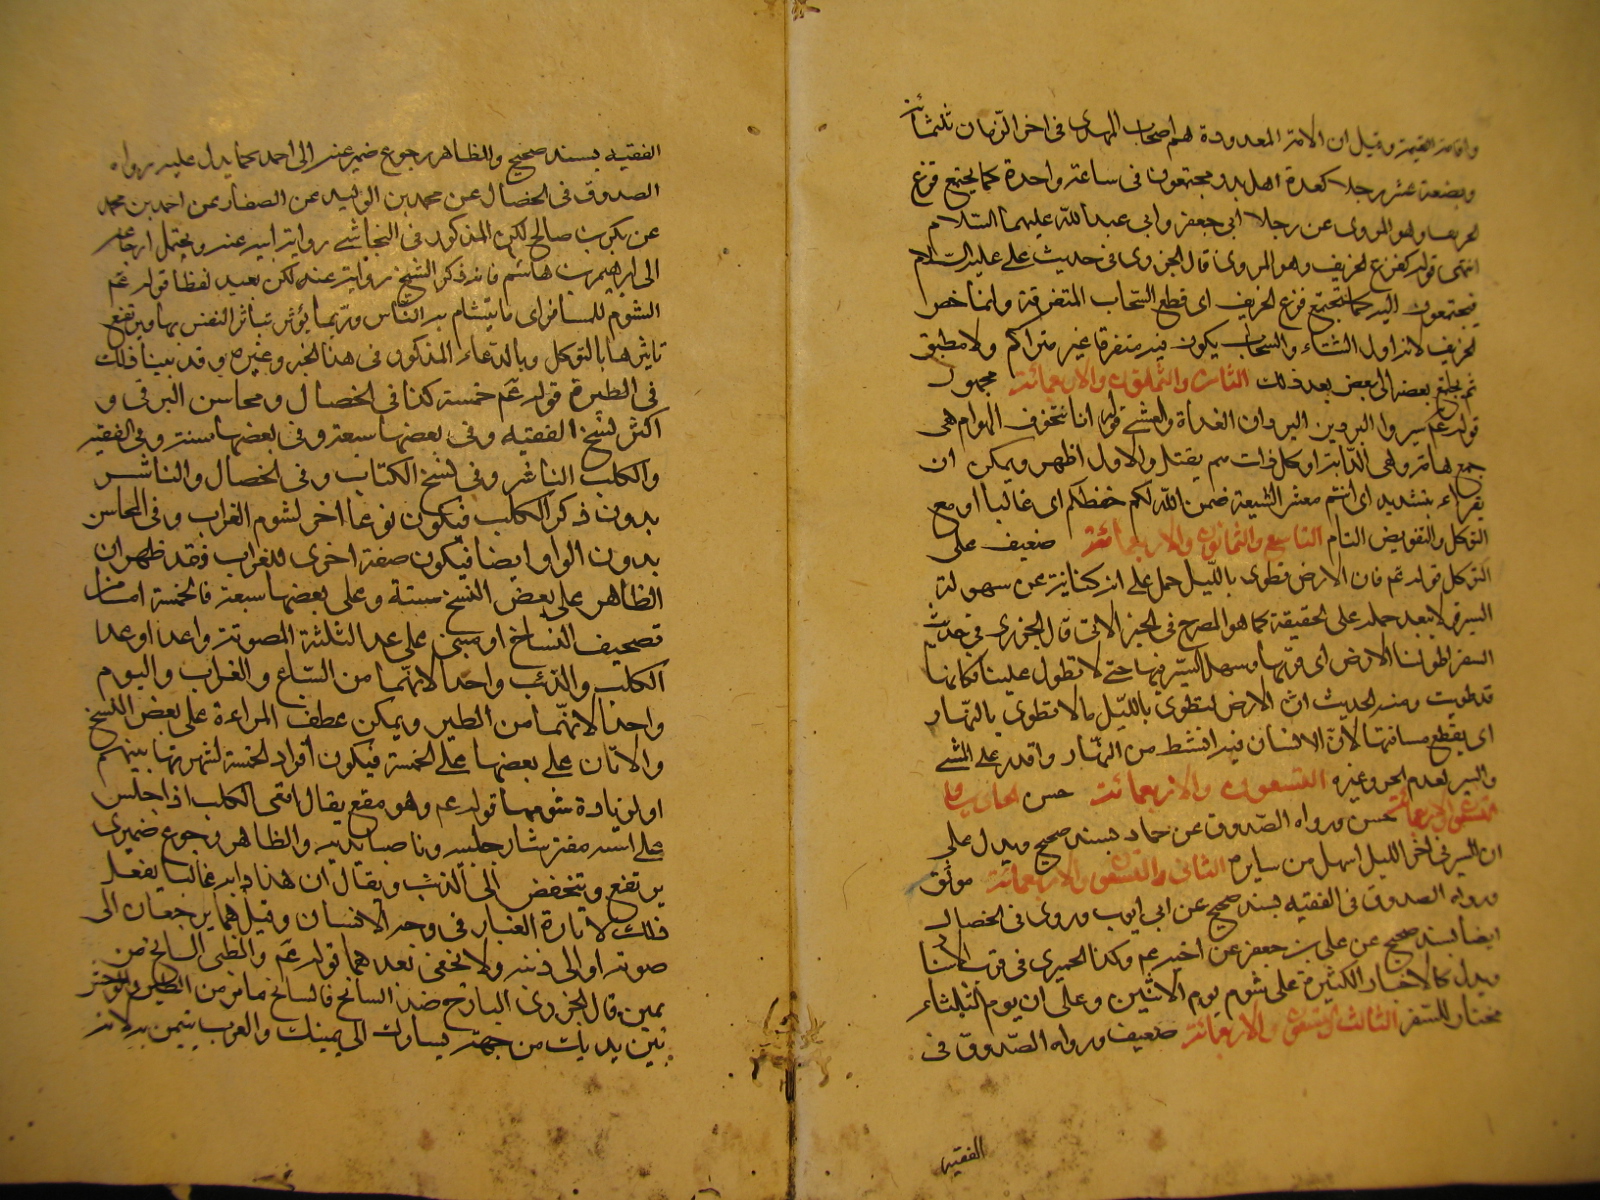 واقامة القيمة وقيل ان الامة المعدودة هم اصحاب المهدى فى اخر الزمان ثلثمائة
وبضعة عشر رجلا كعدة اهل بدر مجتمعون فى ساعة واحدة كما يجتمع قزع
الخريف وهو المروى عن ابى جعفر وابى عبد الله عليهما السلام
انتهى قوله كقزع الخريف وهو المروى قال الجزرى فى حديث على عليه السلام
فيجتمعون اليه كما يجتمع قزع الخريف اى قطع السحاب المتفرقة وانما خص
الخريف لانه اول الشتاء والسحاب يكون فيه متفرقا غير متراكم ولا مطبق
ثم يجتمع بعضه الى بعض بعد ذلك الثامن والثمانون والاربعمائة مجهول
قوله عم سيروا البردين البردان الغداة والعشى قوله انا نتخوف الهوام هى
جمع هامة وهى الدابة او كل ذات سم يقتل والاول اظهر ويمكن ان
يقراء بتشديد اى انتم معشر الشيعة ضمن الله لكم حفظكم اى غالبا او مع
التوكل والتفويض التام التاسع والثمانون والاربعمائة ضعيف على
التوكل قوله عم فان الارض تطوى بالليل حمل على انه كناية عن سهولة
السير ولا يبعد حمله على الحقيقة كما هو المصرح فى الخبر الاتى قال الجزرى فى حديث
السفر اطو لنا الارض اى قربها وسهل السير فيها حتى لا تطول علينا فكانها
قد طويت ومنه الحديث ان الارض لتطوى بالليل ما لا تطوى بالنهار
اى يقطع مسافتها لان الانسان فيه انشط من النهار واقدر على المشى
والسير لعدم الحر وغيره التسعون والاربعمائة حسن الحادى و
التسعون والاربعمائة حسن ورواه الصدوق عن حماد بسند صحيح ويدل على
ان السير فى اخر الليل اسهل من سايره الثانى والتسعون والاربعمائة موثق
ورواه الصدوق فى الفقيه بسند صحيح عن ابى ايوب وروى فى الخصال
ايضا بسند صحيح عن على بن جعفر عن اخيه عم وكذا الحميرى فى قرب الاسناد
ويدل كالاخبار الكثيرة على شوم يوم الاثنين وعلى ان يوم الثلثاء
مختار للسفر الثالث والتسعون والاربعمائة ضعيف ورواه الصدوق فى
الفقيه
الفقيه بسند صحيح والظاهر رجوع ضمير عنه الى احمد كما يدل عليه رواه
الصدوق فى الخصال عن محمد بن الوليد عن الصفار عن احمد بن محمد
عن بكر بن صالح لكن المذكور فى النجاشى رواية ابيه عنه ويحتمل ارجاعه
الى ابرهيم بن هاشم فانه ذكر الشيخ روايته عنه لكن بعيد لفظا قوله عم
الشوم للمسافر اى ما يتشام به الناس وربما يؤثر بتاثر النفس بها ويرتفع
تاثيرها بالتوكل وبالدعاء المذكور فى هذا الخبر وغيره وقد بينا ذلك
فى الطيرة قوله عم خمسة كذا فى الخصال ومحاسن البرقى و
اكثر نسخ الفقيه وفى بعضها سبعة وفى بعضها ستة وفى الفقيه
والكلب الناشر وفى نسخ الكتاب وفى الخصال والناشر
بدون ذكر الكلب فيكون نوعا اخر لشوم الغراب وفى المحاسن
بدون الواو ايضا فيكون صفة اخرى للغراب فقد ظهر ان
الظاهر على بعض النسخ ستة وعلى بعضها سبعة فالخمسة اما من
تصحيف النساخ او مبنى على عد الثلثة المصوتة واحدا او عد
الكلب والذئب واحدا لانهما من السباع والغراب والبوم
واحدا لانهما من الطير ويمكن عطف المراءة على بعض النسخ
والاتان على بعضها على الخمسة فيكون افراد الخمسة لشهرتها بينهم
او لزيادة شومها قوله عم وهو مقع يقال اقعى الكلب اذا جلس
على استه مفترشا رجليه وناصبا يديه والظاهر رجوع ضميرى
يرتفع وينخفض الى الذئب ويقال ان هذا دابه غالبا يفعل
ذلك لاثارة الغبار فى وجه الانسان وقيل هما يرجعان الى
صوته او الى ذنبه ولا يخفى بعدهما قوله عم والظبى السانح من
يمين قال الجزرى البارح ضد السانح فالسانح ما مر من الطير والوحش
بين يديك من جهة يسارك الى يمينك والعرب يتيمن به لانه